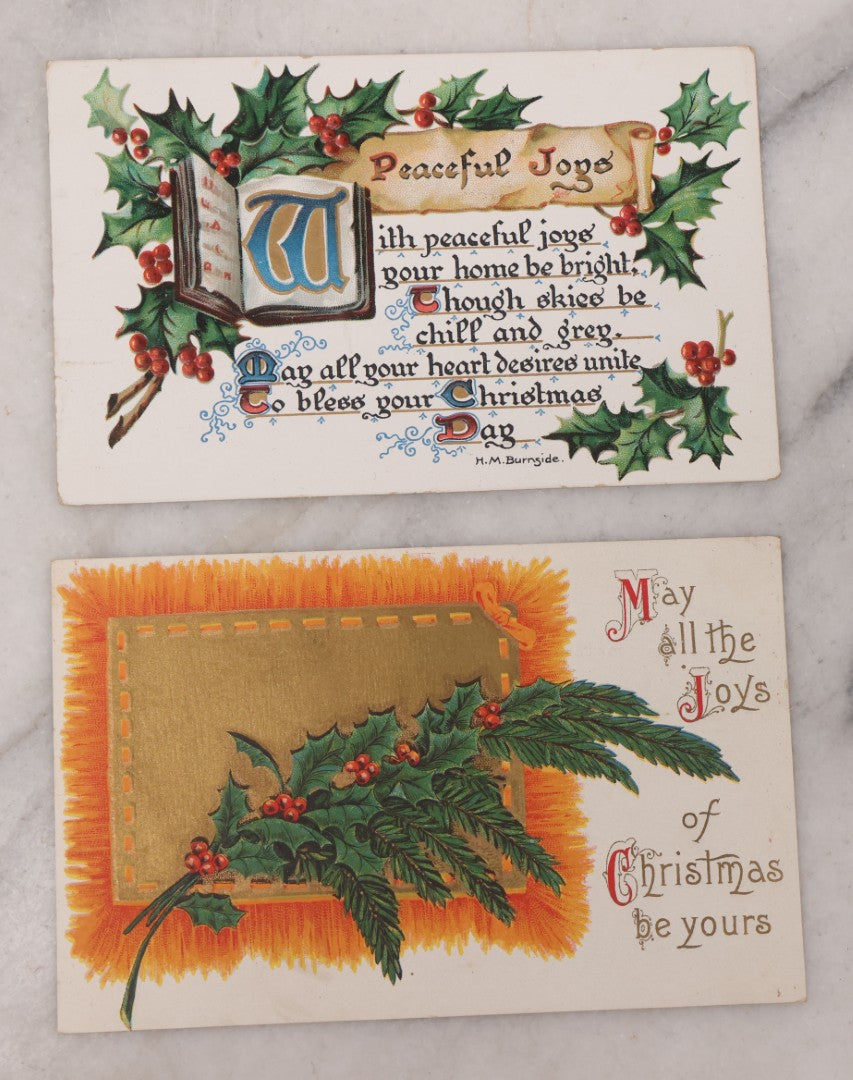 Peaceful Joys
With peaceful joys
your home be bright,
Though skies be
chill and grey,
May all your heart desires unite
To bless your Christmas
Day
H.M.Burnside.
May
all the
Joys
of
Christmas
be yours